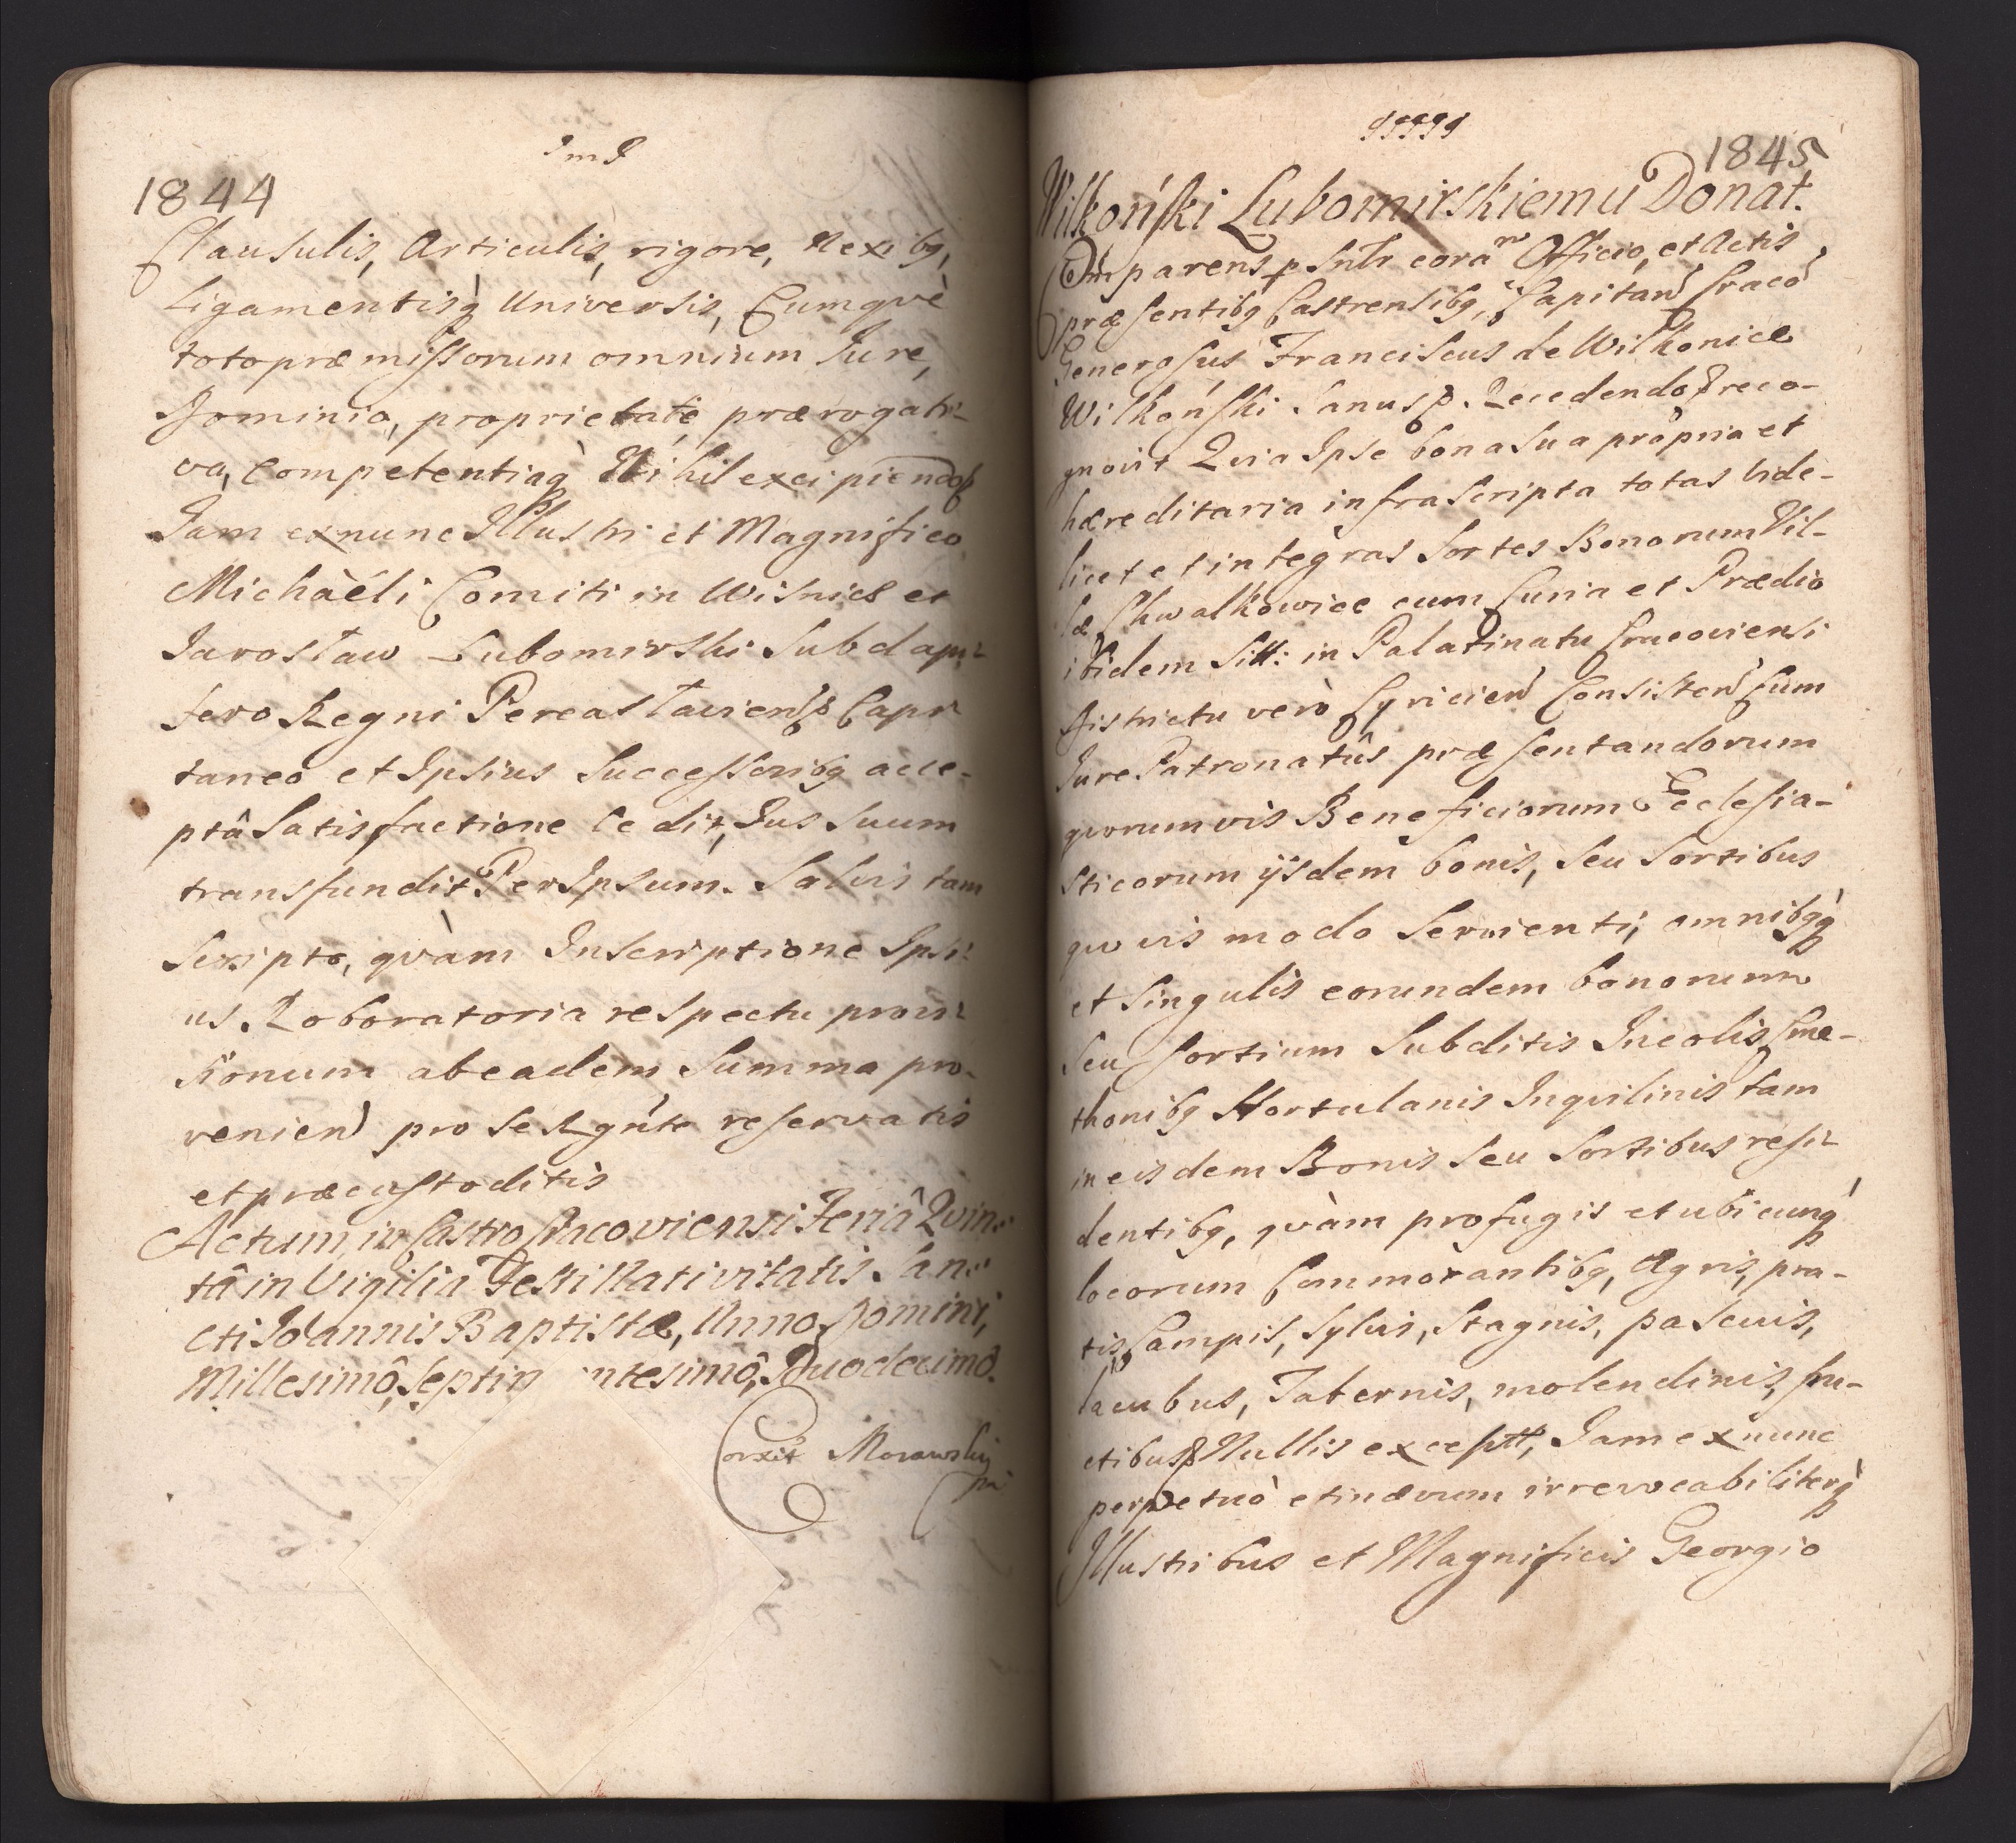 1844
Clausulis, Articulis, rigore, Nexibq,
Ligamentisq̀ Universis, Cumqvè
toto præmissorum omnium Jure,
Dominio, proprietate prærogati-
va, Competentiaq̀ Nihil excipiendo
Jam exnunc Illustri et Magnifico
Michàéli Comiti in Wisnicz et
Jarosław Lubomirski Subdapi-
fero Regni Pereasławiens Capi-
taneo et Ipsius Successoribq acce-
ptâ Satisfactione Cedit, Jus Suum
transfundit Per Ipsum. Salvis tam
Scripto, qvàm Inscriptione Ipsi-
us Roboratoria respectu provi-
sionum ab eadem Summa pro-
venien pro se Rgnte reservatis
et præcustoditis
Actum in Castro Cracoviensi Feriâ Qvin-
tâ in Vigilia Festi Nativitatis San-
cti Joannis Baptistæ, Anno Domini,
Millesimô, Septin ntesimô, Duodecimô.
Corxit Morawski
1845
Wilkoński Lubomirskiemu Donat.
Comparens prsntr corã Officio, et Actis
præsentibq Castrensibq, Capitan Craco
Generosus Franciscus de Wilkonice
Wilkoński Sanus p. Recedendo p reco-
gnovit Qvia Ipse bona sua propria et
hæreditaria infrascripta totas vide-
licet et integras Sortes Bonorum Vil-
læ Chwalkowice cum Curia et Prædio
ibidem Sitt: in Palatinatu Cracoviensi
Districtu verò Cyricien Consisten Cum
Jure Patronatûs præsentandorum
qvorumvis Beneficiorum Ecclesia-
sticorum ijsdem bonis, Seu Sortibus
qvovis modo Servienti, omnibqq̀
et Singulis eorundem bonorum
Seu Sortium Subditis Incolis Cme-
thonibq Hortulanis Inqvilinis tam
in eisdem Bonis Seu Sortibus resi-
dentibq, qvàm profugis et ubicunq̀
locorum Commorantibq, Agris, pra-
tis Campis, Sylvis, Stagnis, pascuis,
lacubus, Tabernis, molendinis, fru-
ctibus Nullis exceptt, Jam exnunc
perpetuò et in ævum irrevocabiliterq̀
Illustribus et Magnificis Georgio